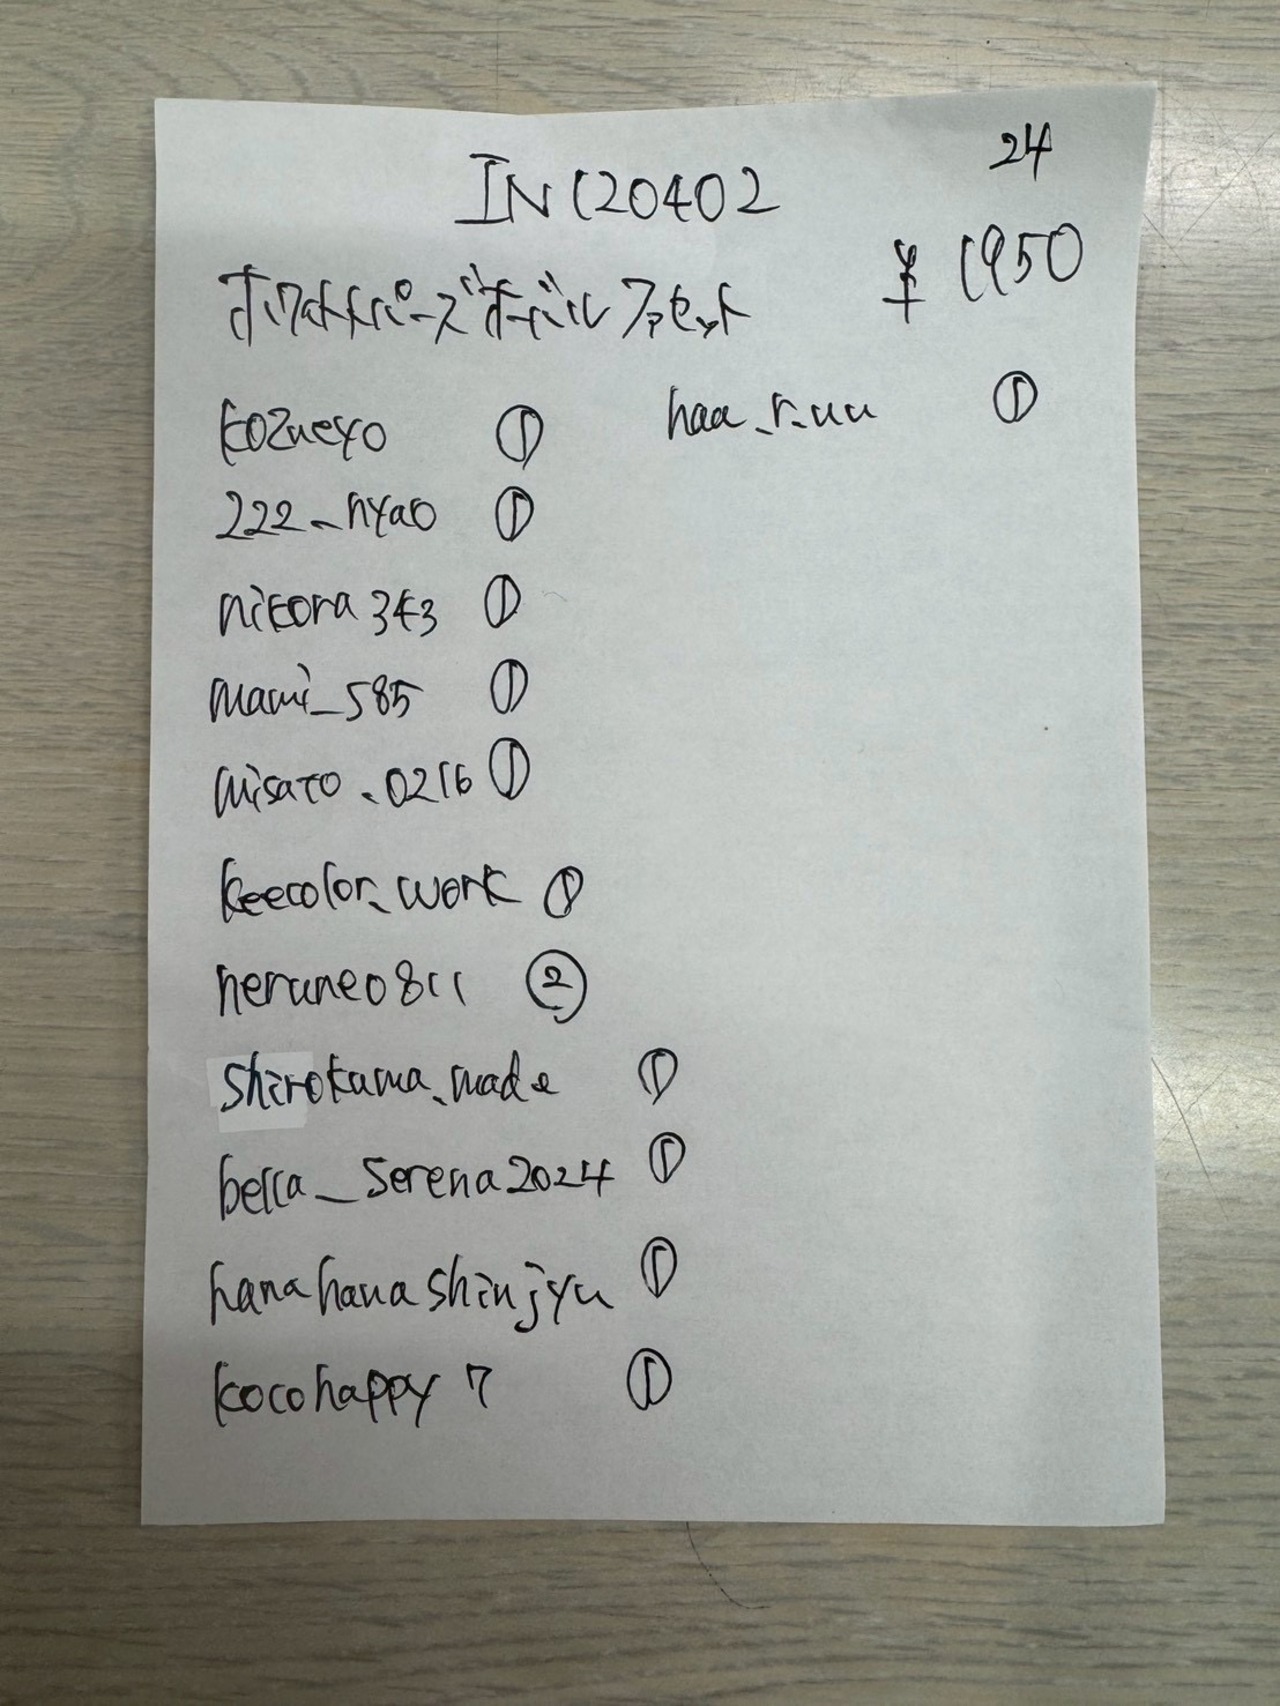 24
IN120402
¥1950
ホワイトトパーズオーバルファセット
kozueyo ①
haa_r.uu ①
222_nyao ①
nikora343 ①
mami_585 ①
misato.0216 ①
keecolor_work ①
nerune0811 ②
shirokuma_made ①
bella_serena2024 ①
hanahanashinjyu ①
kocohappy7 ①